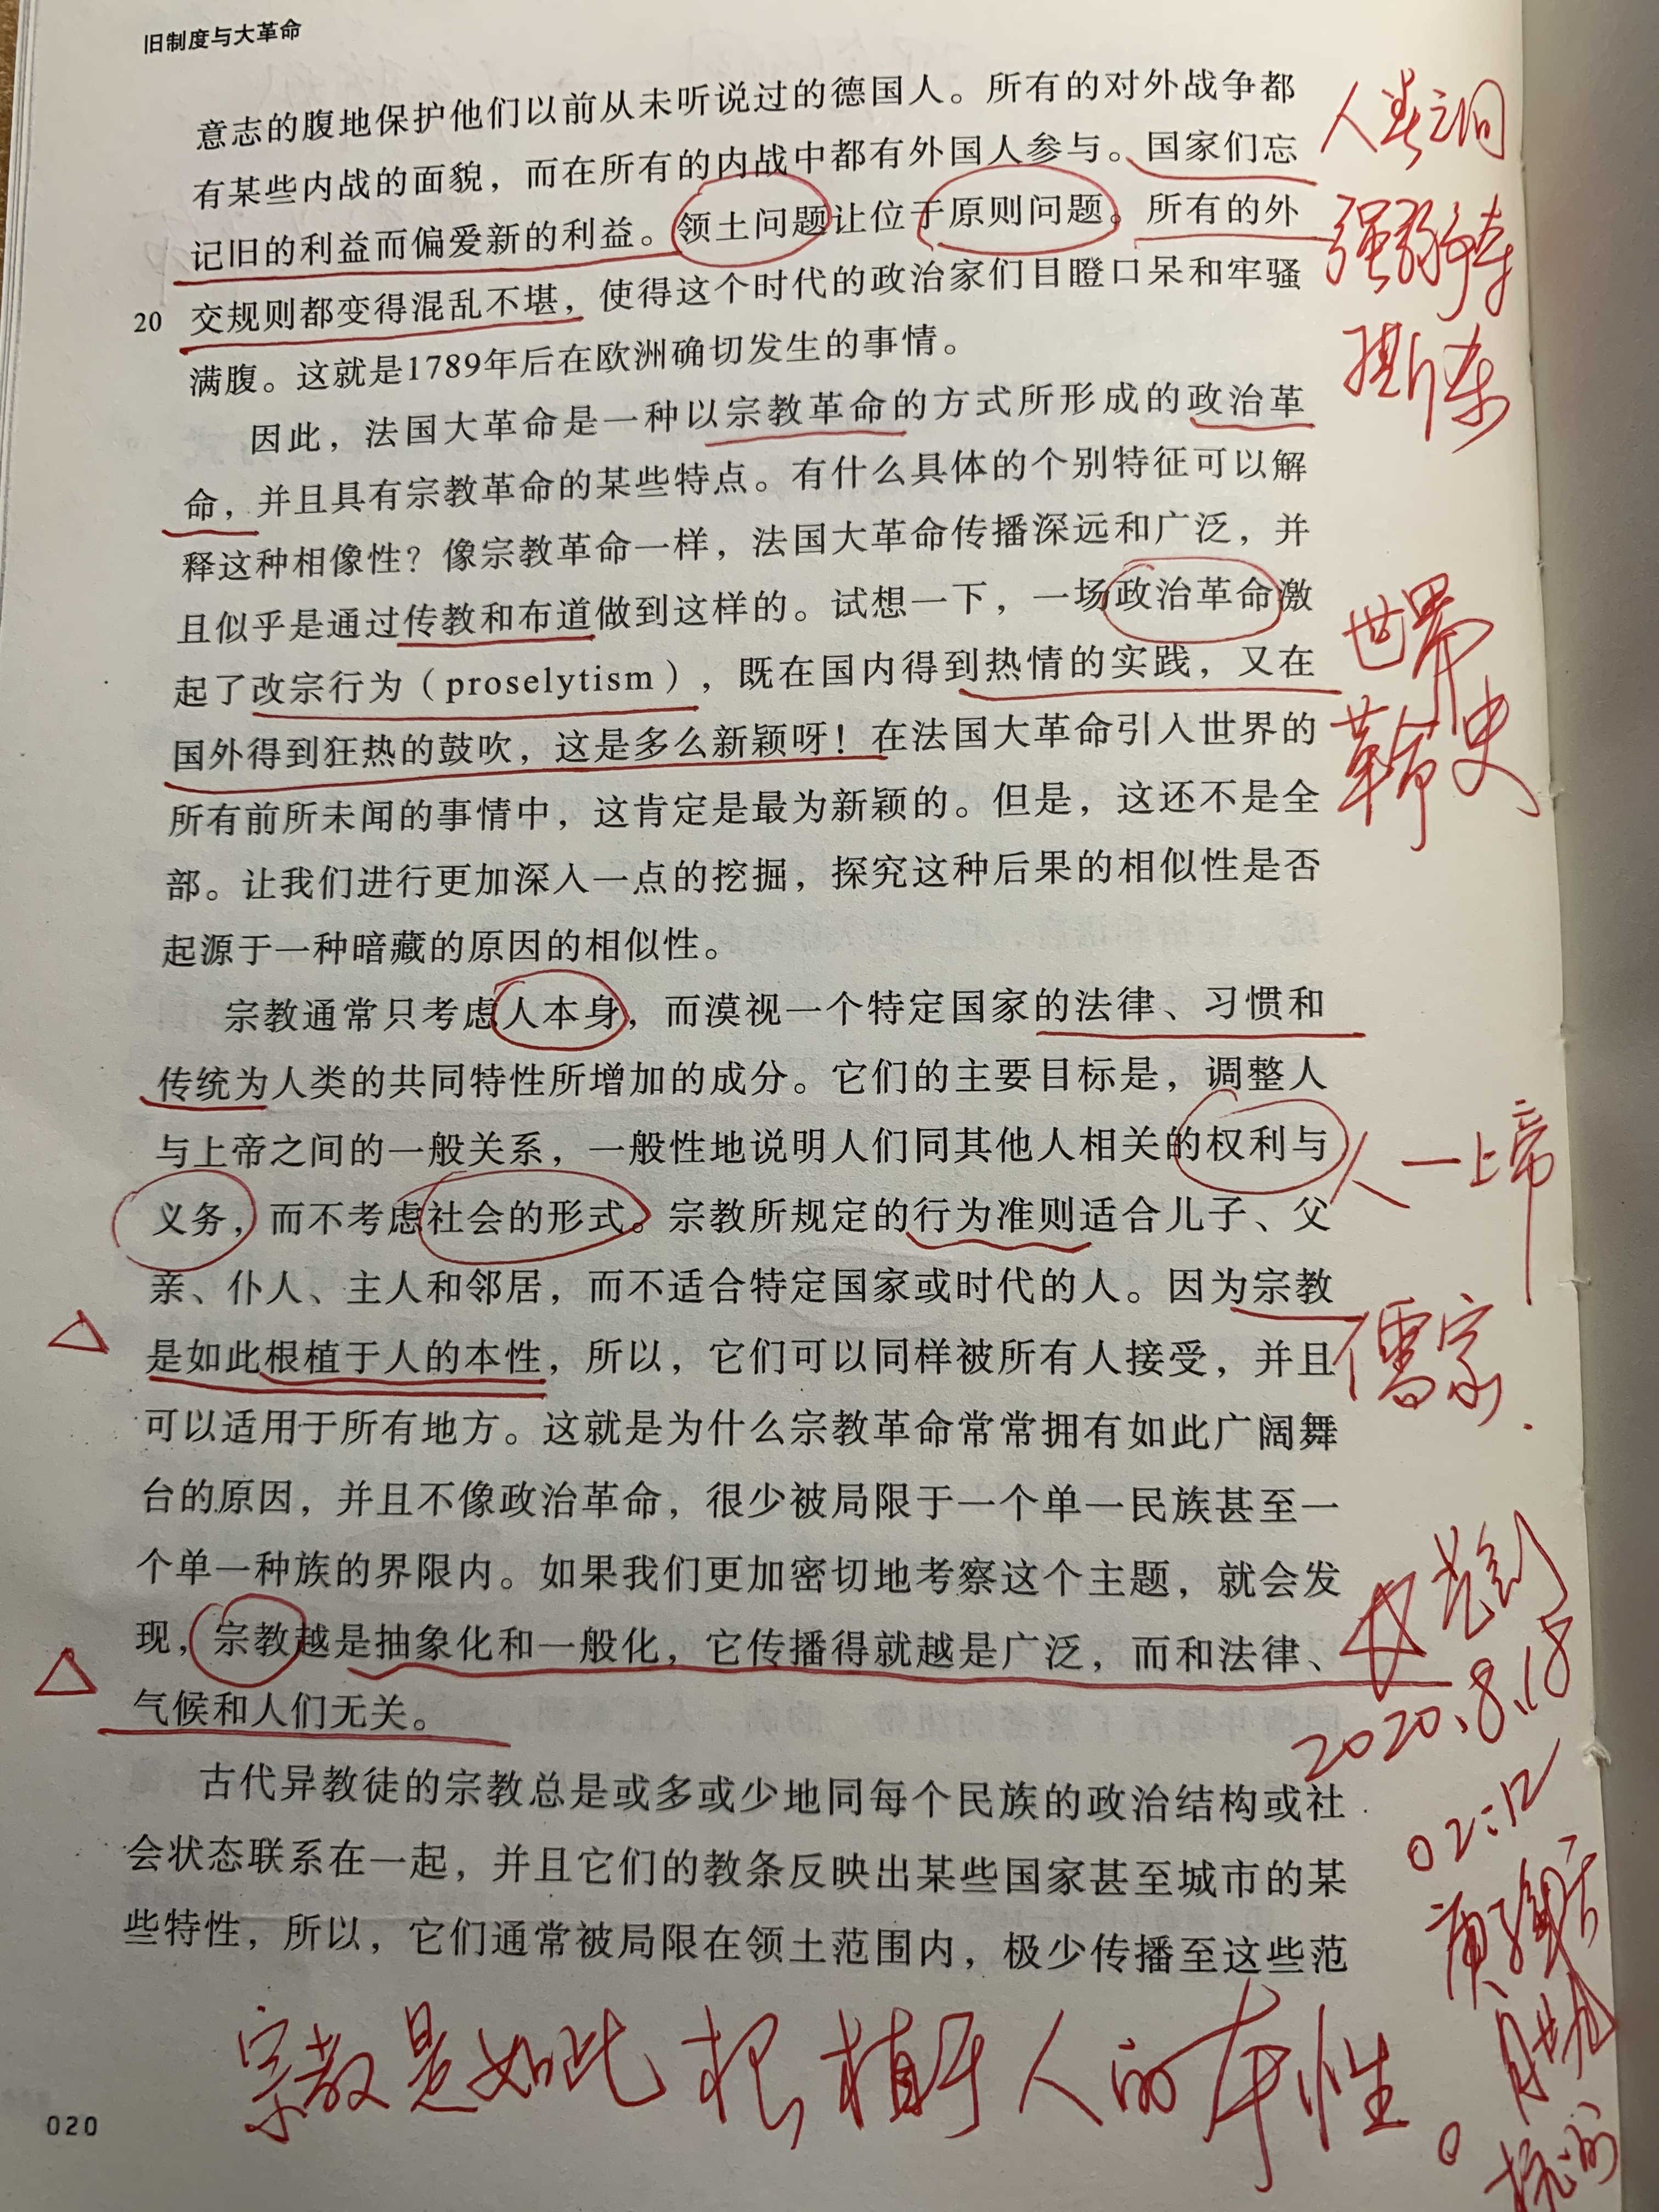 旧制度与大革命
意志的腹地保护他们以前从未听说过的德国人。所有的对外战争都
有某些内战的面貌，而在所有的内战中都有外国人参与。国家们忘
记旧的利益而偏爱新的利益。领土问题让位于原则问题。所有的外
20 交规则都变得混乱不堪，使得这个时代的政治家们目瞪口呆和牢骚
满腹。这就是1789年后在欧洲确切发生的事情。
因此，法国大革命是一种以宗教革命的方式所形成的政治革
命，并且具有宗教革命的某些特点。有什么具体的个别特征可以解
释这种相像性？像宗教革命一样，法国大革命传播深远和广泛，并
且似乎是通过传教和布道做到这样的。试想一下，一场政治革命激
起了改宗行为（proselytism），既在国内得到热情的实践，又在
国外得到狂热的鼓吹，这是多么新颖呀！在法国大革命引入世界的
所有前所未闻的事情中，这肯定是最为新颖的。但是，这还不是全
部。让我们进行更加深入一点的挖掘，探究这种后果的相似性是否
起源于一种暗藏的原因的相似性。
宗教通常只考虑人本身，而漠视一个特定国家的法律、习惯和
传统为人类的共同特性所增加的成分。它们的主要目标是，调整人
与上帝之间的一般关系，一般性地说明人们同其他人相关的权利与
义务，而不考虑社会的形式。宗教所规定的行为准则适合儿子、父
亲、仆人、主人和邻居，而不适合特定国家或时代的人。因为宗教
是如此根植于人的本性，所以，它们可以同样被所有人接受，并且
可以适用于所有地方。这就是为什么宗教革命常常拥有如此广阔舞
台的原因，并且不像政治革命，很少被局限于一个单一民族甚至一
个单一种族的界限内。如果我们更加密切地考察这个主题，就会发
现，宗教越是抽象化和一般化，它传播得就越是广泛，而和法律、
气候和人们无关。
古代异教徒的宗教总是或多或少地同每个民族的政治结构或社
会状态联系在一起，并且它们的教条反映出某些国家甚至城市的某
些特性，所以，它们通常被局限在领土范围内，极少传播至这些范
020
人类之间
世界
革命史
人一上帝
儒家
2020.8.18
02:12
宗教是如此根植于人的本性。